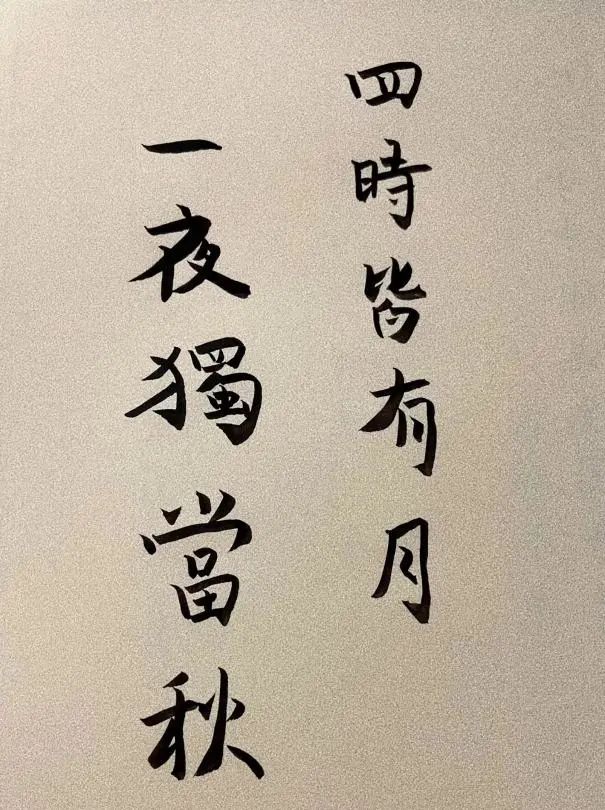 四時皆有月
一夜獨當秋